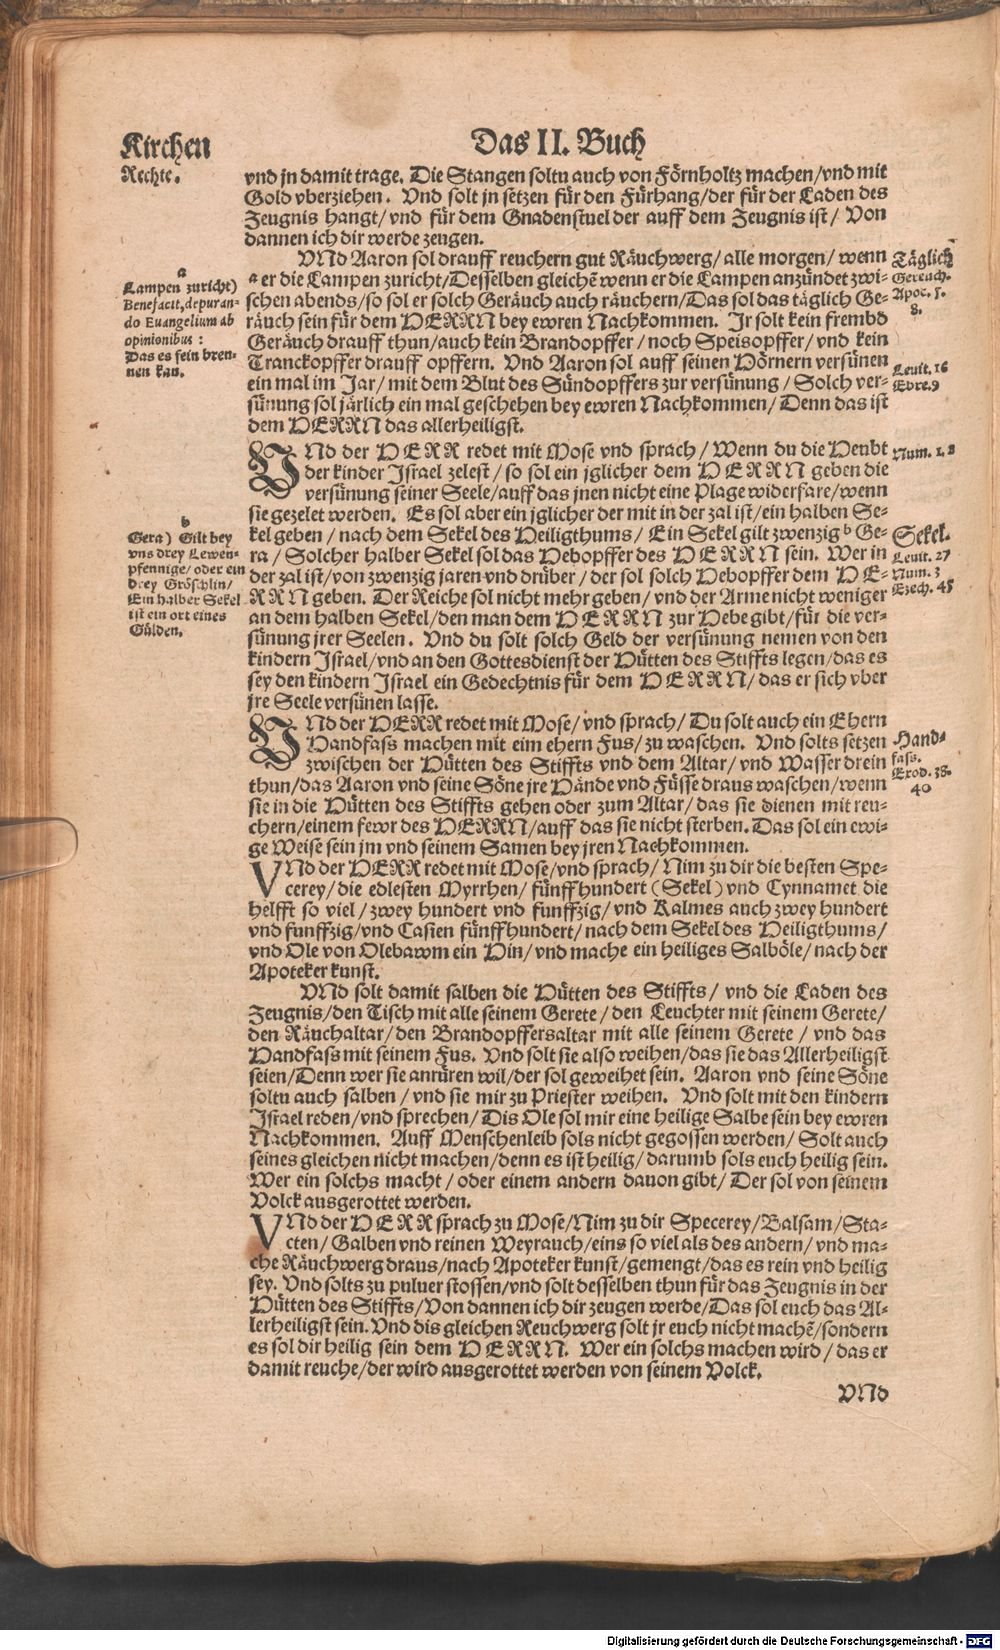 Kirchen
Rechte.
Das II. Buch
vnd jn damit trage. Die Stangen soltu auch von Förnholtz machen/vnd mit
Gold vberziehen. Vnd solt jn setzen für den Fürhang/der für der Laden des
Zeugnis hangt/vnd für dem Gnadenstuel der auff dem Zeugnis ist/ Von
dannen ich dir werde zeugen.
VNd Aaron sol drauff reuchern gut Räuchwerg/alle morgen/wenn
a er die Lampen zuricht/Desselben gleichẽ wenn er die Lampen anzündet zwi-
schen abends/so sol er solch Geräuch auch räuchern/Das sol das täglich Ge-
räuch sein für dem HERRN bey ewren Nachkommen. Jr solt kein frembd
Geräuch drauff thun/auch kein Brandopffer/noch Speisopffer/vnd kein
Tranckopffer drauff opffern. Vnd Aaron sol auff seinen Hörnern versünen
ein mal im Jar/mit dem Blut des Sündopffers zur versünung/Solch ver-
sünung sol järlich ein mal geschehen bey ewren Nachkommen/Denn das ist
dem HERRN das allerheiligst.
a
Lampen zuricht)
Benefacit, depuran-
do Euangelium ab
opinionibus:
Das es fein bren-
nen kan.
Täglich
Gereuch.
Apoc. 5.
8.
Leuit. 16
Ebre. 9
VNd der HERR redet mit Mose vnd sprach/Wenn du die Heubt
der kinder Jsrael zelest/so sol ein jglicher dem HERRN geben die
versünung seiner Seele/auff das jnen nicht eine Plage widerfare/wenn
sie gezelet werden. Es sol aber ein jglicher der mit in der zal ist/ein halben Se-
kel geben/nach dem Sekel des Heiligthums/Ein Sekel gilt zwenzig b Ge-
ra/Solcher halber Sekel sol das Hebopffer des HERRN sein. Wer in
der zal ist/von zwenzig jaren vnd drüber/der sol solch Hebopffer dem HE-
RRN geben. Der Reiche sol nicht mehr geben/vnd der Arme nicht weniger
an dem halben Sekel/den man dem HERRN zur Hebe gibt/für die ver-
sünung jrer Seelen. Vnd du solt solch Geld der versünung nemen von den
kindern Jsrael/vnd an den Gottesdienst der Hütten des Stiffts legen/das es
sey den kindern Jsrael ein Gedechtnis für dem HERRN/das er sich vber
jre Seele versünen lasse.
Num. 1. 2
b
Gera) Gilt bey
vns drey Lewen-
pfennige/oder ein
drey Gröschlin/
Ein halber Sekel
ist ein ort eines
Gülden.
Sekel.
Leuit. 27
Num. 3
Ezech. 45
VNd der HERR redet mit Mose/vnd sprach/Du solt auch ein Ehern
Handfass machen mit eim ehern Fus/zu waschen. Vnd solts setzen
zwischen der Hütten des Stiffts vnd dem Altar/vnd Wasser drein
thun/das Aaron vnd seine Söne jre Hände vnd Füsse draus waschen/wenn
sie in die Hütten des Stiffts gehen oder zum Altar/das sie dienen mit reu-
chern/einem fewr des HERRN/auff das sie nicht sterben. Das sol ein ewi-
ge Weise sein jm vnd seinem Samen bey jren Nachkommen.
Hand-
fass.
Exod. 38.
40
VNd der HERR redet mit Mose/vnd sprach/Nim zu dir die besten Spe-
cerey/die edlesten Myrrhen/fünffhundert (Sekel) vnd Cynnamet die
helfft so viel/zwey hundert vnd funffzig/vnd Kalmes auch zwey hundert
vnd funffzig/vnd Casien fünffhundert/nach dem Sekel des Heiligthums/
vnd Ole von Olebawm ein Hin/vnd mache ein heiliges Salböle/nach der
Apoteker kunst.
VNd solt damit salben die Hütten des Stiffts/vnd die Laden des
Zeugnis/den Tisch mit alle seinem Gerete/den Leuchter mit seinem Gerete/
den Räuchaltar/den Brandopffersaltar mit alle seinem Gerete/vnd das
Handfass mit seinem Fus. Vnd solt sie also weihen/das sie das Allerheiligst
seien/Denn wer sie anrüren wil/der sol geweihet sein. Aaron vnd seine Söne
soltu auch salben/vnd sie mir zu Priester weihen. Vnd solt mit den kindern
Jsrael reden/vnd sprechen/Dis Ole sol mir eine heilige Salbe sein bey ewren
Nachkommen. Auff Menschenleib sols nicht gegossen werden/Solt auch
seines gleichen nicht machen/denn es ist heilig/darumb sols euch heilig sein.
Wer ein solchs macht/oder einem andern dauon gibt/Der sol von seinem
Volck ausgerottet werden.
VNd der HERR sprach zu Mose/Nim zu dir Specerey/Balsam/Sta-
cten/Galben vnd reinen Weyrauch/eins so viel als des andern/vnd ma-
che Räuchwerg draus/nach Apoteker kunst/gemengt/das es rein vnd heilig
sey. Vnd solts zu puluer stossen/vnd solt desselben thun für das Zeugnis in der
Hütten des Stiffts/Von dannen ich dir zeugen werde/Das sol euch das Al-
lerheiligst sein. Vnd dis gleichen Reuchwerg solt jr euch nicht machẽ/sondern
es sol dir heilig sein dem HERRN. Wer ein solchs machen wird/das er
damit reuche/der wird ausgerottet werden von seinem Volck.
VNd
Digitalisierung gefördert durch die Deutsche Forschungsgemeinschaft - DFG